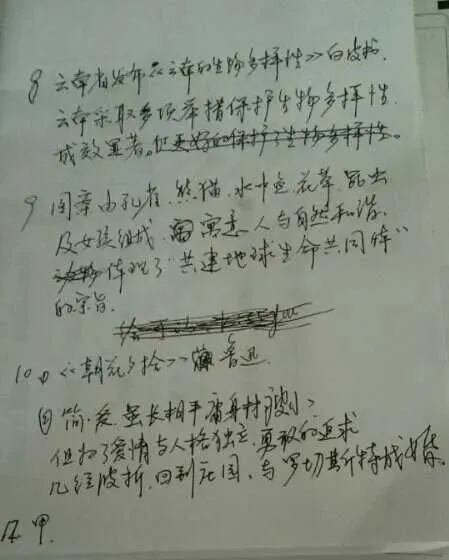 8 云南省发布《云南的生物多样性》白皮书,
云南采取多项举措保护生物多样性,
成效显著。但更好的保护了生物多样性。
9 图案由孔雀、熊猫、水中鱼、花草、
及女孩组成,寓意人与自然和谐,
体现了“共建地球生命共同体”
的宗旨。
10 ① 《朝花夕拾》 鲁迅
② 简·爱,虽长相平庸身材瘦小,
但为了爱情与人格独立,勇敢的追求
几经波折,回到庄园,与罗切斯特成婚。
12 甲